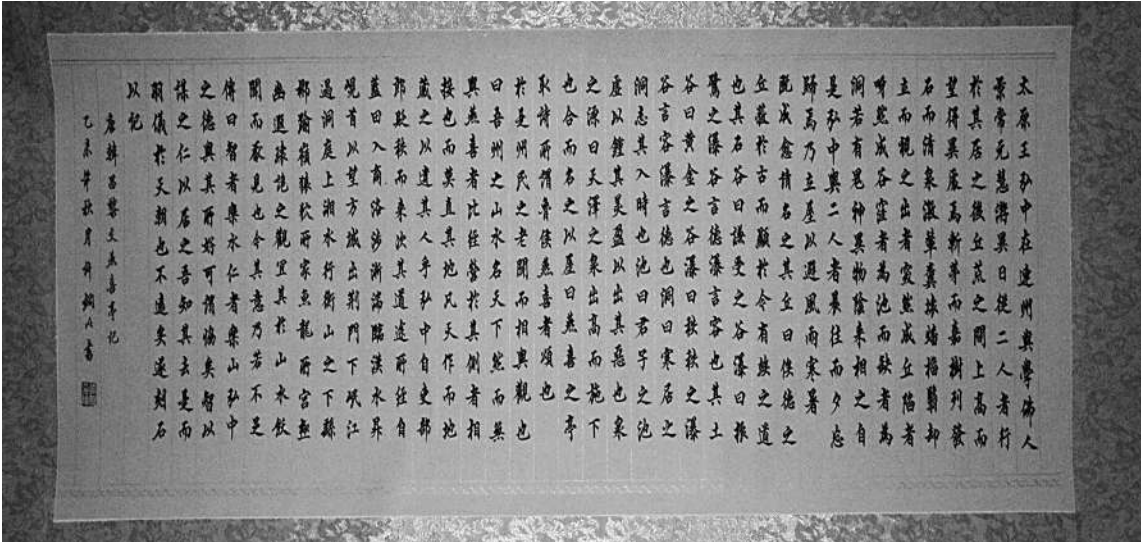 太原王弘中在連州與學佛人
景常元慧游異日從二人者行
於其居之後丘荒之間上高而
望得異處焉斬茅而嘉樹列發
石而清泉激輦糞壤燔椔翳却
立而視之出者突然成丘陷者
呀然成谷窪者為池而缺者為
洞若有鬼神異物陰來相之自
是弘中與二人者晨往而夕忘
歸焉乃立屋以避風雨寒暑
既成愈請名之其丘曰俟德之
丘蔽於古而顯於今有竢之道
也其石谷曰謙受之谷瀑曰振
鷺之瀑谷言德瀑言容也其土
谷曰黃金之谷瀑曰秩秩之瀑
谷言容瀑言德也洞曰寒居之
洞志其入時也池曰君子之池
虛以鍾其美盈以出其惡也泉
之源曰天澤之泉出高而施下
也合而名之以屋曰燕喜之亭
取詩所謂魯侯燕喜者頌也
於是州民之老聞而相與觀也
曰吾州之山水名天下然而無
與燕喜者比經營於其側者相
接也而莫直其地凡天作而地
藏之以遺其人乎弘中自吏部
郎貶秩而來次其道途所經自
藍田入商洛涉淅湍臨漢水昇
峴首以望方城出荊門下岷江
過洞庭上湘水行衡山之下繇
郴踰嶺猿狖所家魚龍所宮極
幽遐瑰詭之觀宜其於山水飫
聞而厭見也今其意乃若不足
傳曰智者樂水仁者樂山弘中
之德與其所好可謂協矣智以
謀之仁以居之吾知其去是而
羽儀於天朝也不遠矣遂刻石
以記
唐韓昌黎文燕喜亭記
乙未年秋月許書